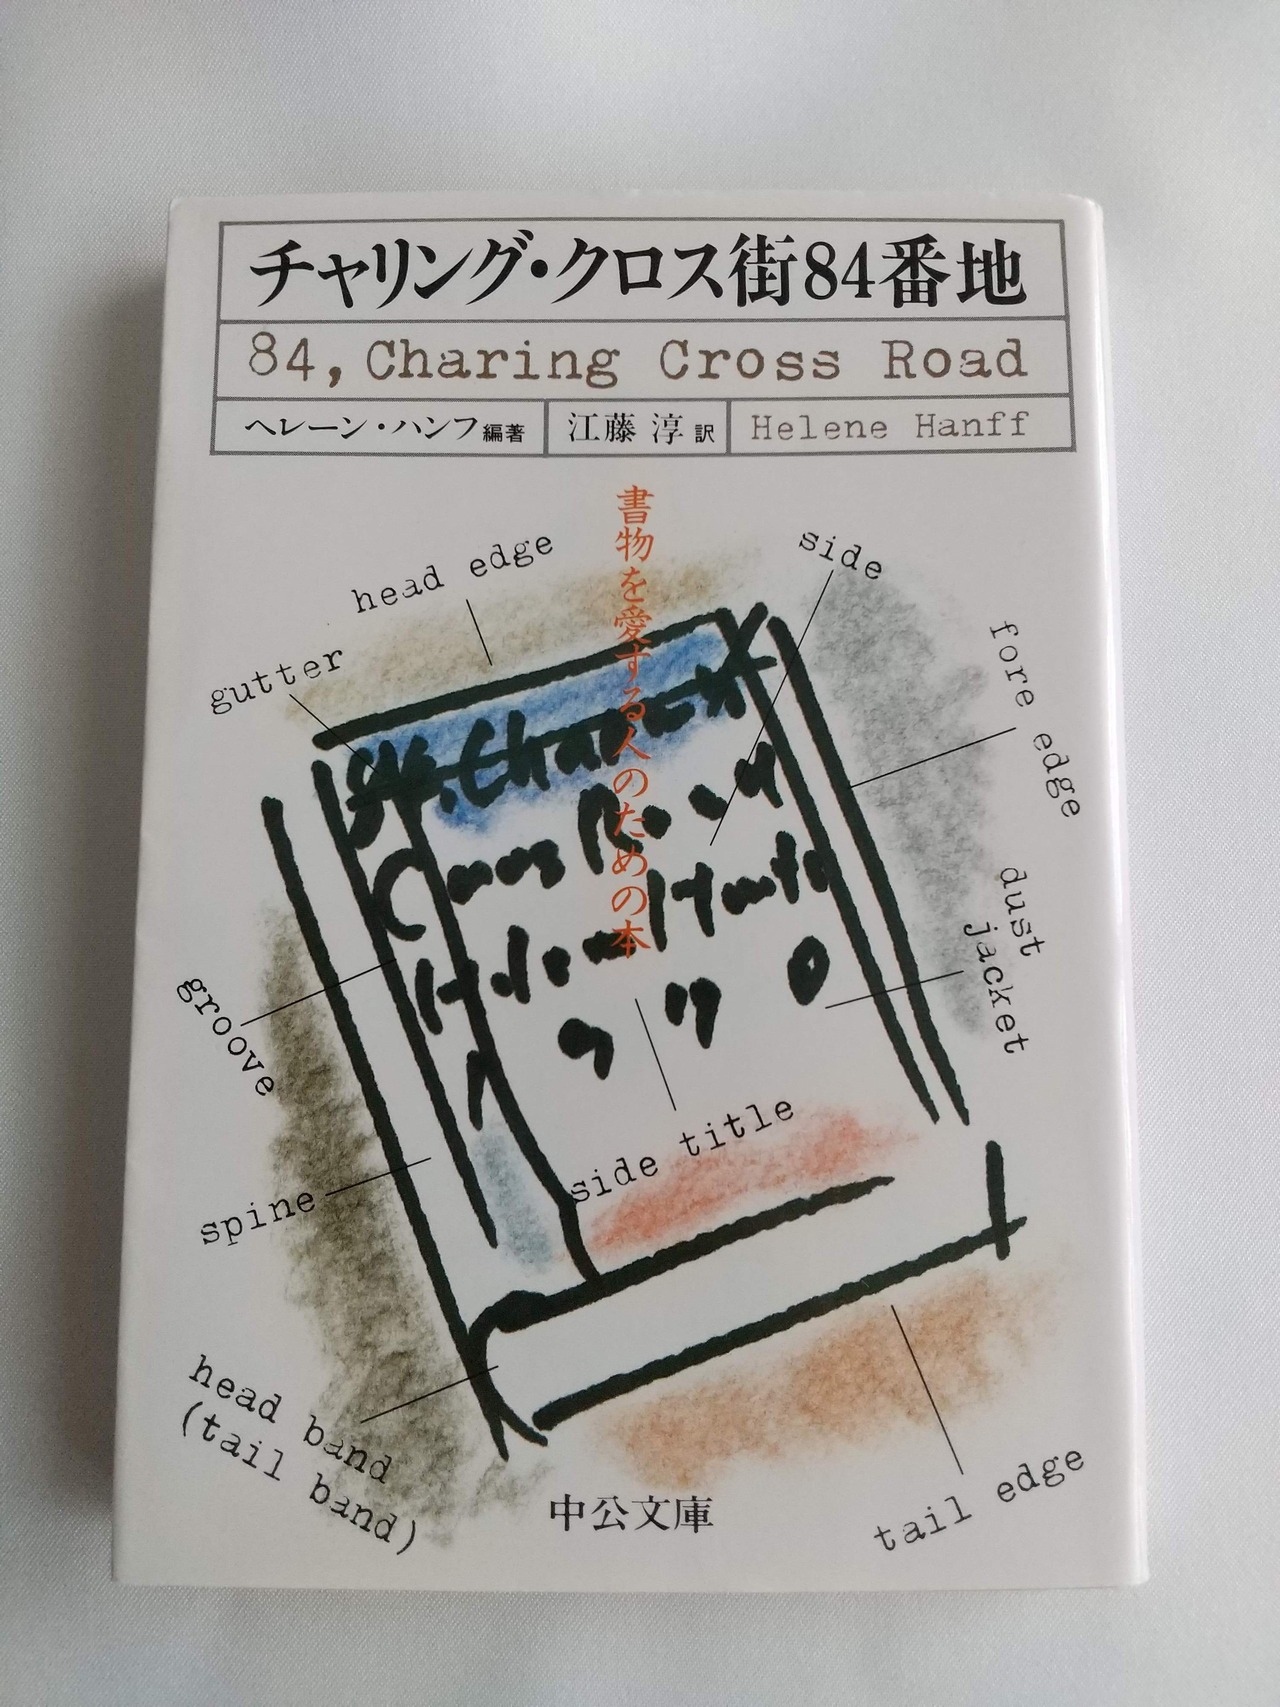 チャリング・クロス街84番地
84, Charing Cross Road
ヘレーン・ハンフ編著
江藤 淳 訳
Helene Hanff
書物を愛する人のための本
head edge
side
gutter
fore edge
84. Charing
Cross Road
dust
jacket
groove
side title
spine
head band
(tail band)
tail edge
中公文庫